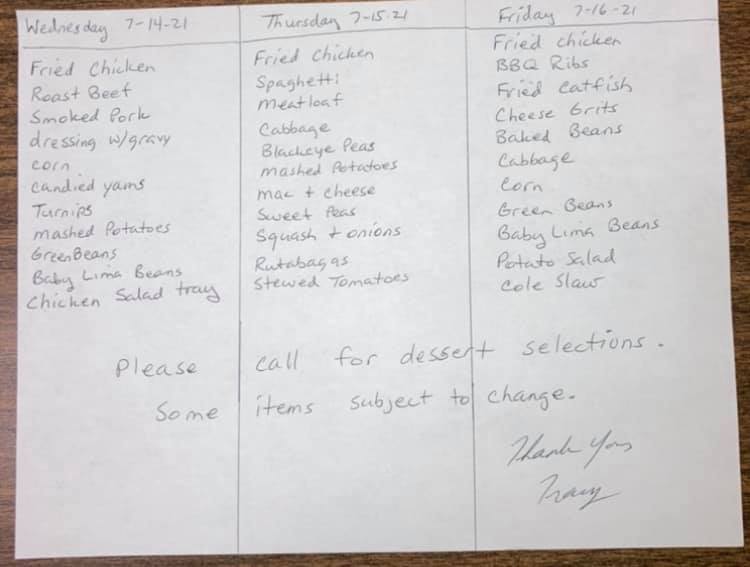 Wednesday 7-14-21
Fried Chicken
Roast Beef
Smoked Pork
dressing w/gravy
corn
candied yams
Turnips
mashed Potatoes
Green Beans
Baby Lima Beans
Chicken Salad tray
Thursday 7-15-21
Fried Chicken
Spaghetti
meatloaf
Cabbage
Blackeye Peas
mashed Potatoes
mac + cheese
Sweet Peas
Squash + onions
Rutabagas
Stewed Tomatoes
Friday 7-16-21
Fried chicken
BBQ Ribs
Fried Catfish
Cheese Grits
Baked Beans
Cabbage
Corn
Green Beans
Baby Lima Beans
Potato Salad
Cole Slaw
Please call for dessert selections.
Some items subject to change.
Thank You
Tracy